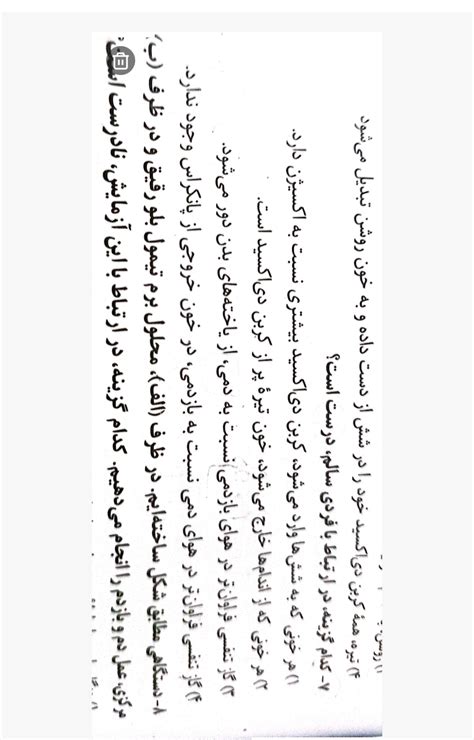 ۴) تیره، همهٔ کربن دی‌اکسید خود را در شش از دست داده و به خون روشن تبدیل می‌شود
۷- کدام گزینه، در ارتباط با فردی سالم، درست است؟
۱) هر خونی که به شش‌ها وارد می‌شود، کربن دی‌اکسید بیشتری نسبت به اکسیژن دارد.
۲) هر خونی که از اندام‌ها خارج می‌شود، خون تیرهٔ پر از کربن دی‌اکسید است.
۳) گاز تنفسی فراوان‌تر در هوای بازدمی نسبت به دمی، از یاخته‌های بدن دور می‌شود.
۴) گاز تنفسی فراوان‌تر در هوای دمی نسبت به بازدمی، در خون خروجی از پانکراس وجود ندارد.
۸- دستگاهی مطابق شکل ساخته‌ایم. در ظرف (الف)، محلول برم تیمول بلو رقیق و در ظرف (ب)
مرکزی، عمل دم و بازدم را انجام می‌دهیم. کدام گزینه، در ارتباط با این آزمایش، نادرست است